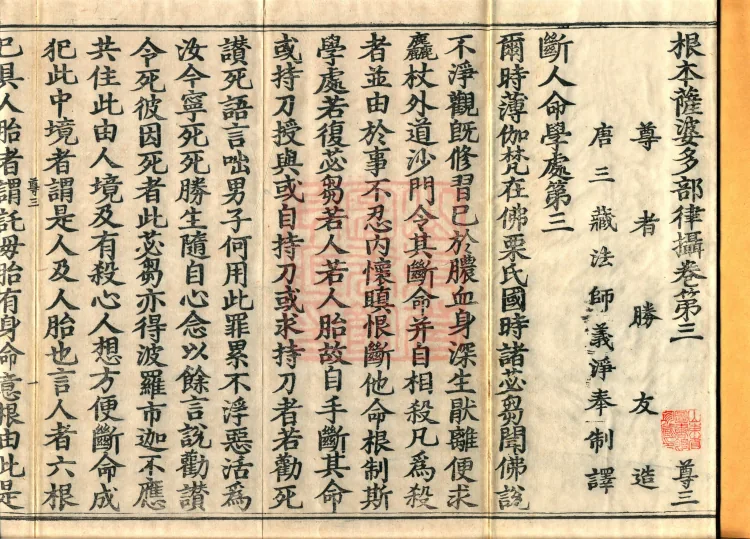 根本薩婆多部律攝卷第三 尊三
尊者勝友造
唐三藏法師義淨奉制譯
斷人命學處第三
爾時薄伽梵在佛栗氏國時諸苾芻聞佛說
不淨觀旣修習已於膿血身深生猒離便求
麤杖外道沙門令其斷命并自相殺凡爲殺
者並由於事不忍内懷瞋恨斷他命根制斯
學處若復苾芻若人若人胎故自手斷其命
或持刀授與或自持刀或求持刀者若勸死
讚死語言咄男子何用此罪累不淨惡活爲
汝今寧死死勝生隨自心念以餘言說勸讚
令死彼因死者此苾芻亦得波羅市迦不應
共住此由人境及有殺心人想方便斷命成
犯此中境者謂是人及人胎也言人者六根
尊三 一
已具人胎者謂託母胎有身命意根由此是